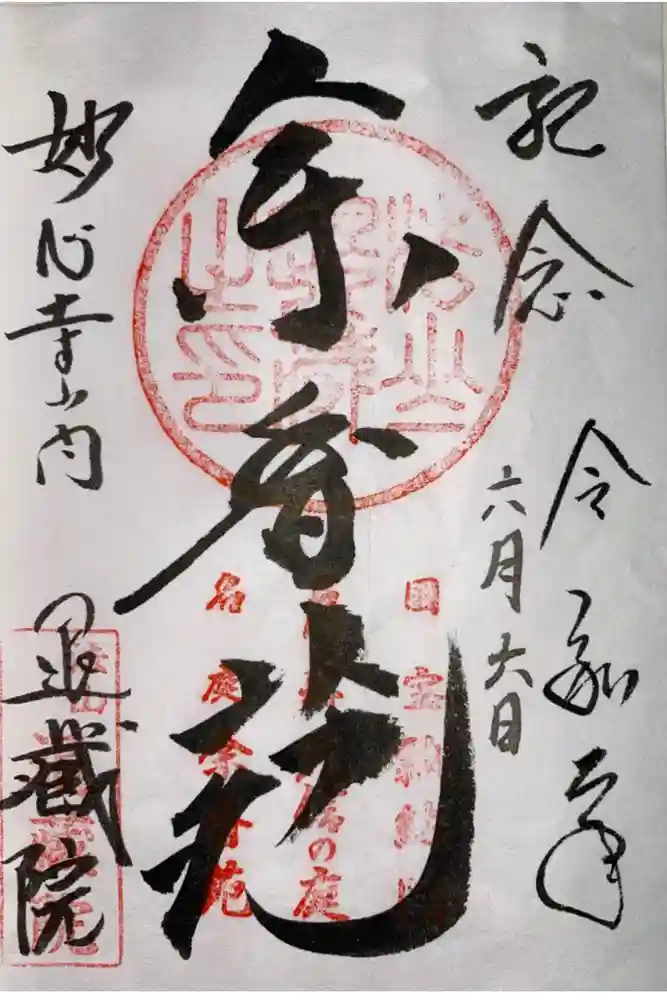 記念 令和年
六月六日
余香苑
国宝瓢鮎図
の庭
名庭余香苑
妙心寺山内 退蔵院